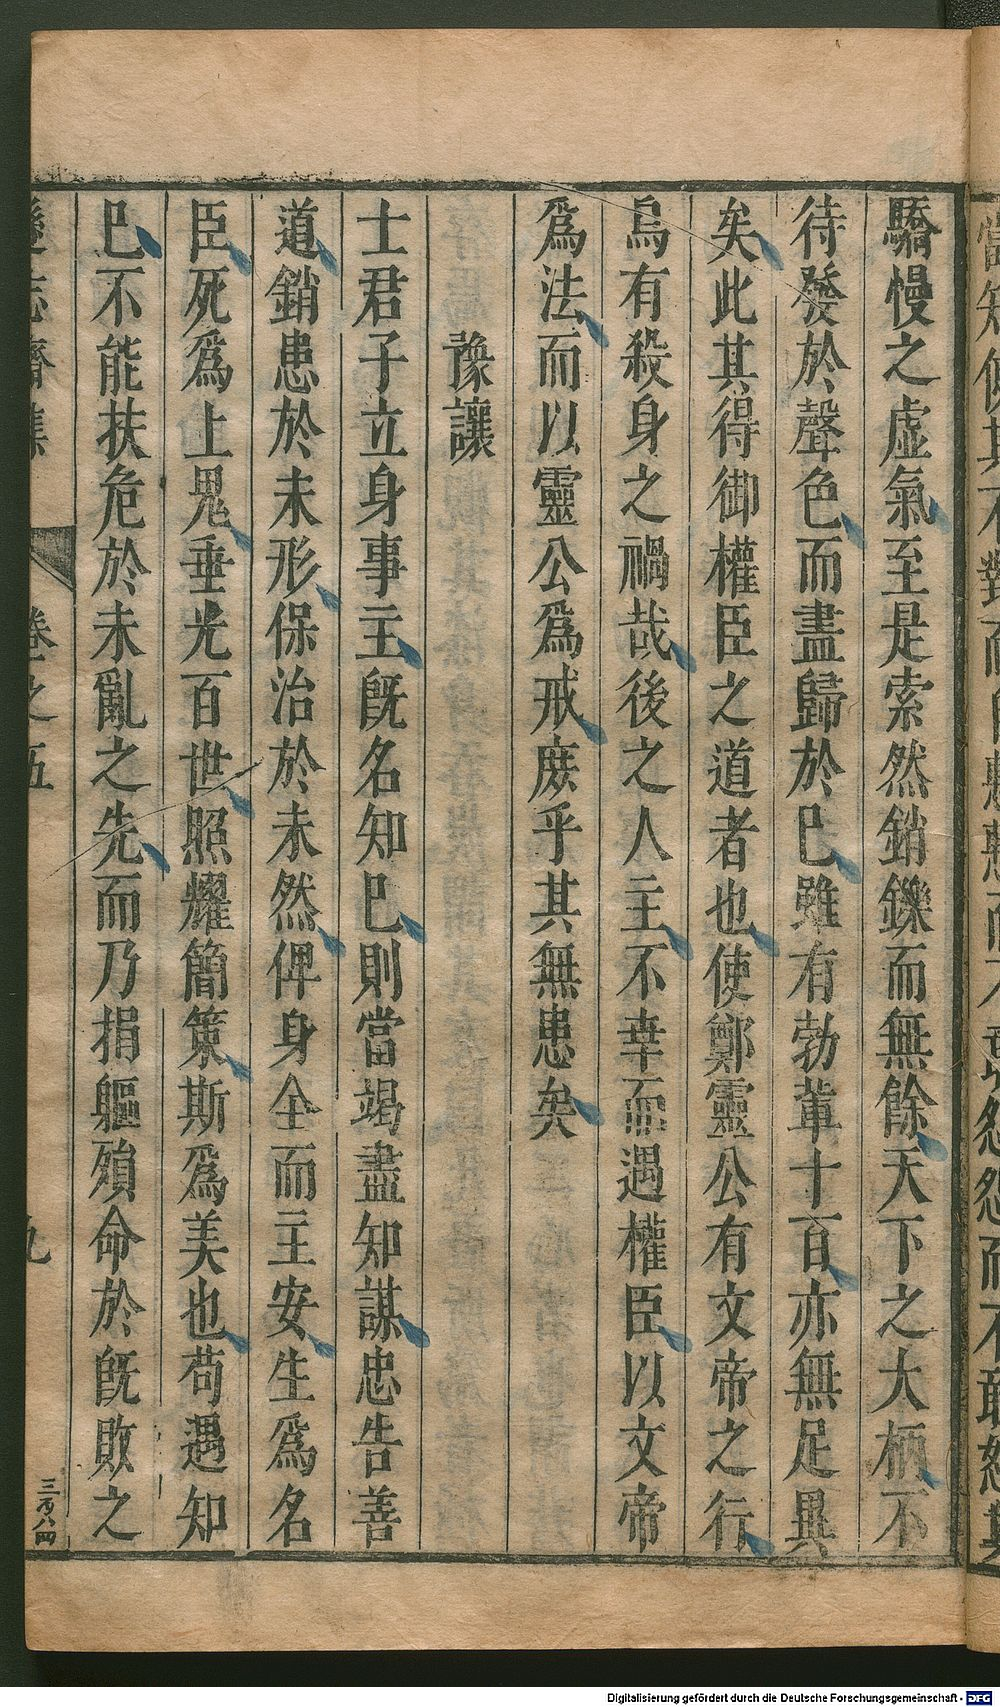 驕慢之虛氣至是索然銷鑠而無餘天下之大柄不
待發於聲色而盡歸於已雖有勃鞏十百亦無足異
矣此其得御權臣之道者也使鄭靈公有文帝之行
烏有殺身之禍哉後之人主不幸而遇權臣以文帝
爲法而以靈公爲戒庶乎其無患矣
豫讓
士君子立身事主旣名知已則當竭盡知謀忠告善
道銷患於未形保治於未然俾身全而主安生爲名
臣死爲上鬼垂光百世照耀簡策斯爲美也苟遇知
已不能扶危於未亂之先而乃捐軀殞命於旣敗之
遜志齋集 卷之五 九 三百八四
Digitalisierung gefördert durch die Deutsche Forschungsgemeinschaft - DFG